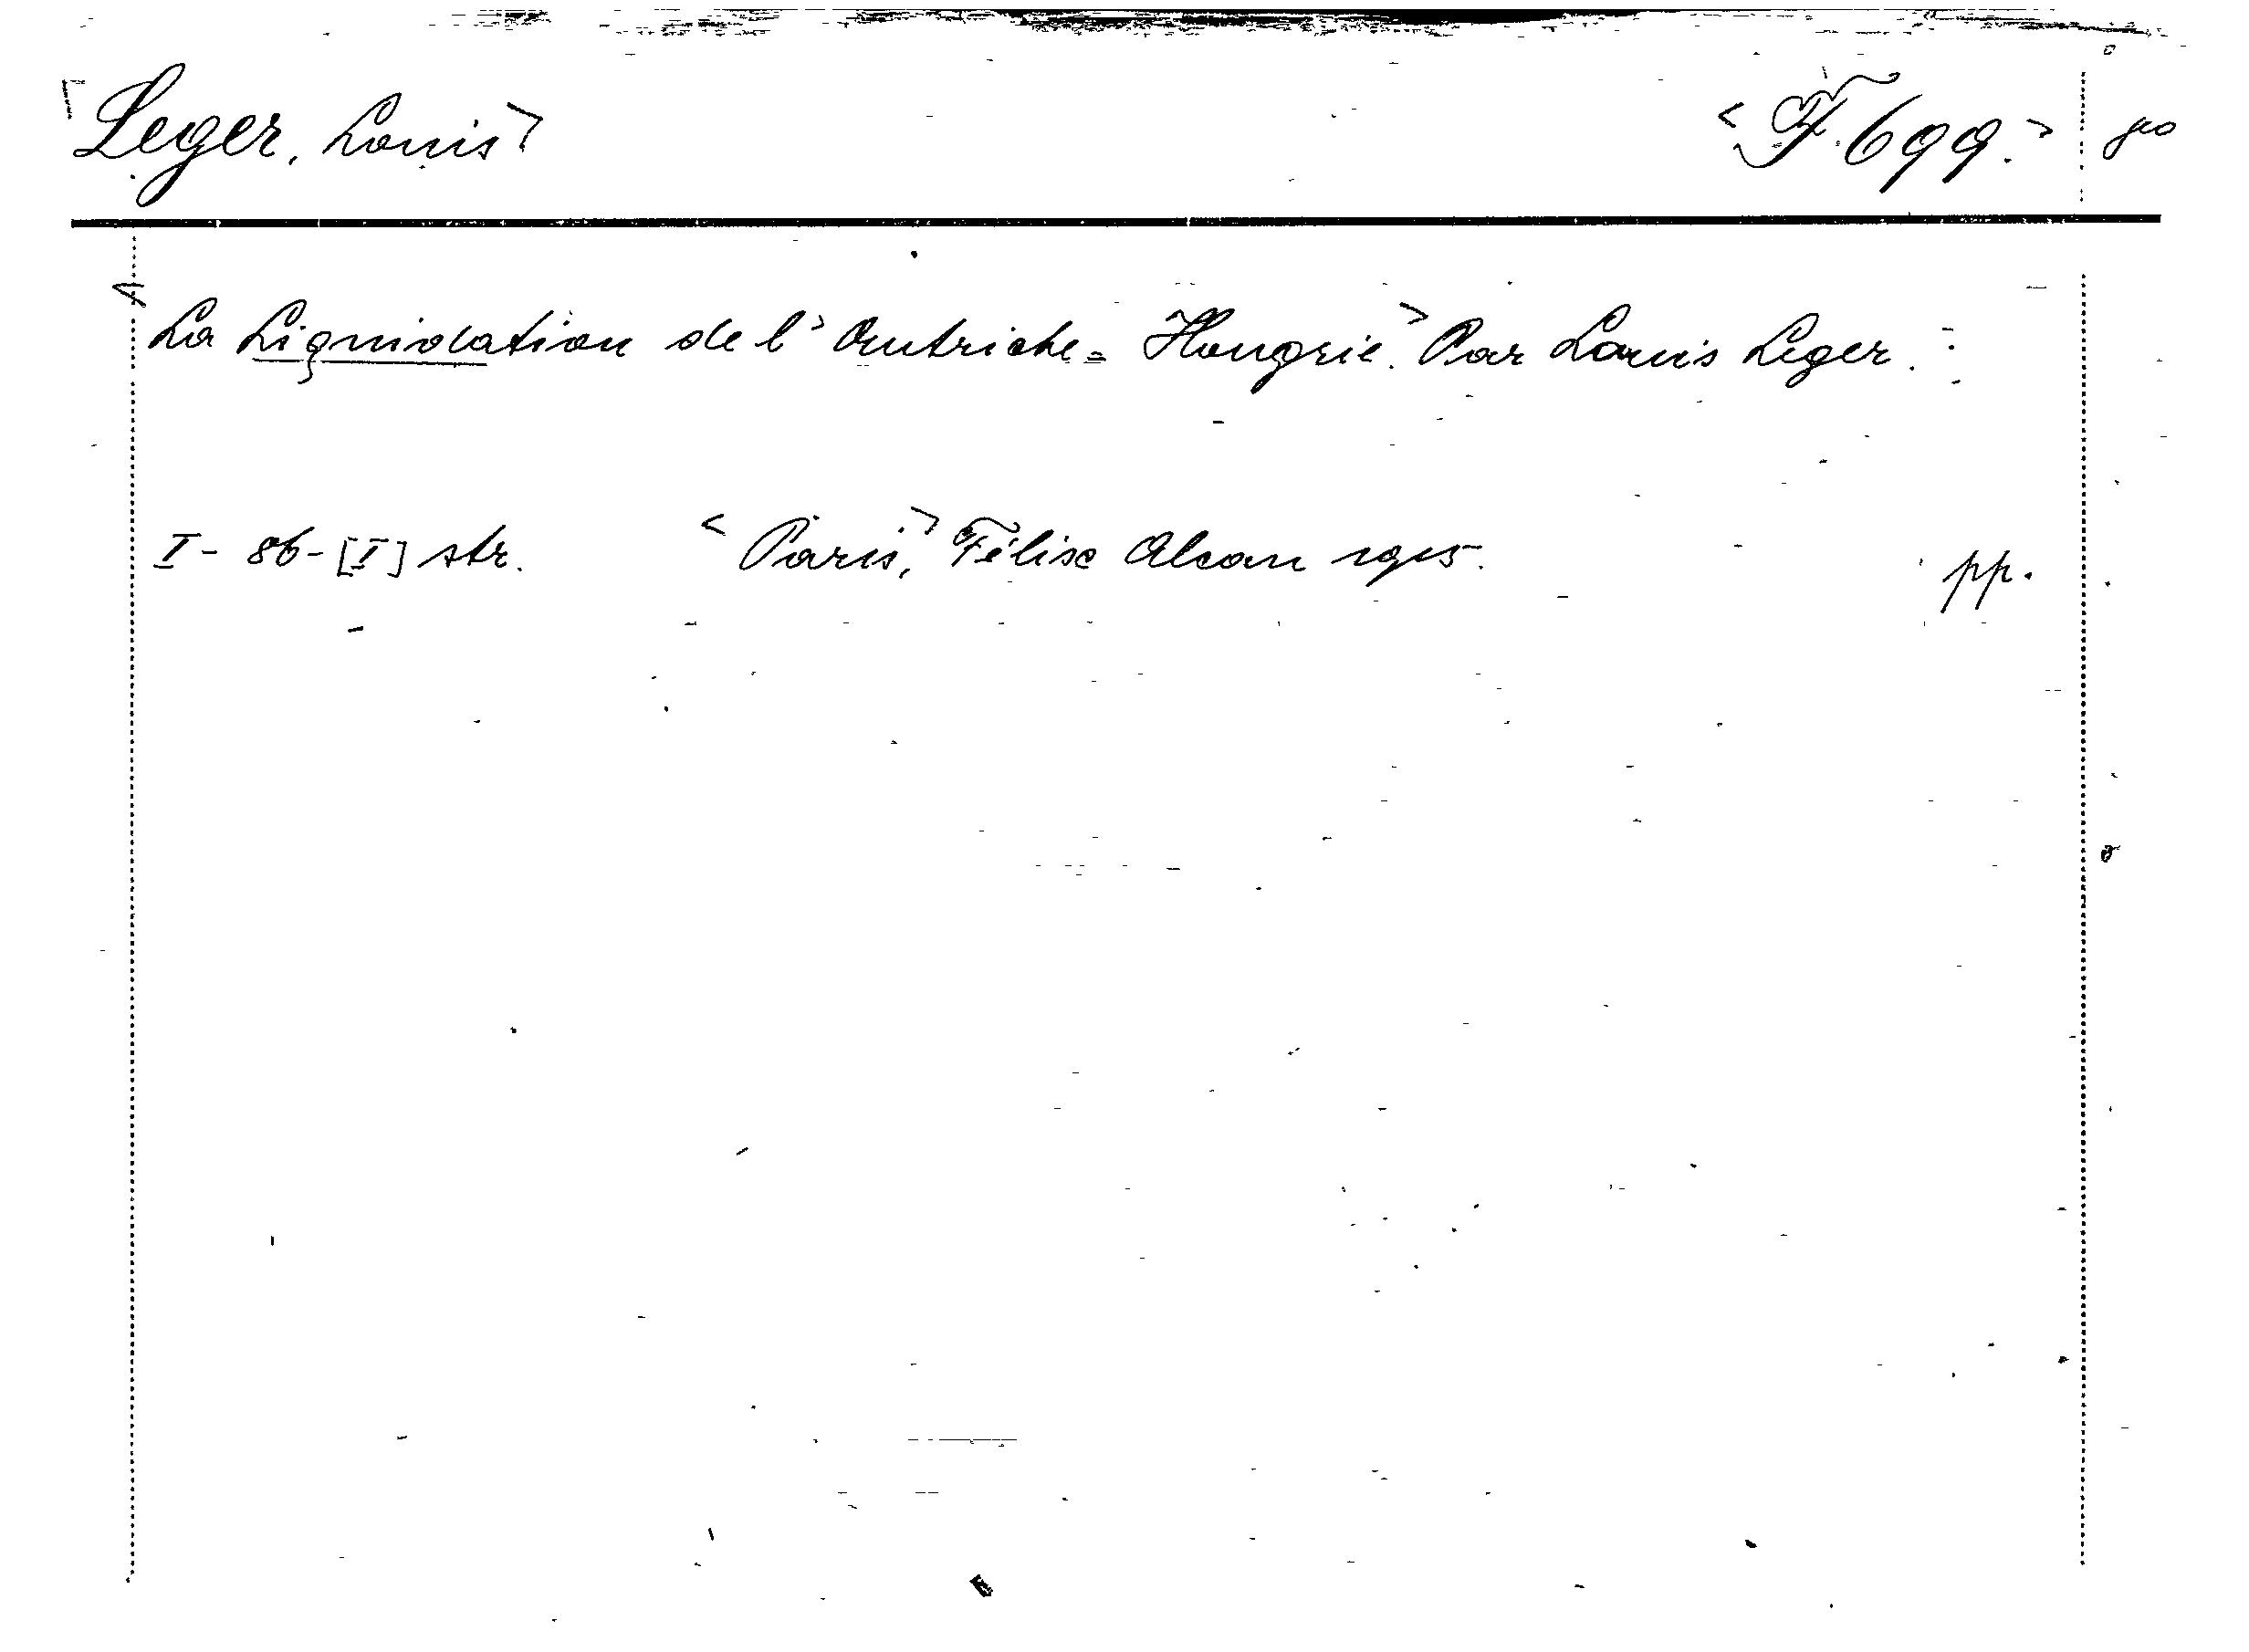 <Leger, Louis> <F. 699.> geo
<La Liquidation de l'Autriche-Hongrie.> Par Louis Leger.
I-86-[I] str. <Paris,> Félix Alcan 1915. pp.